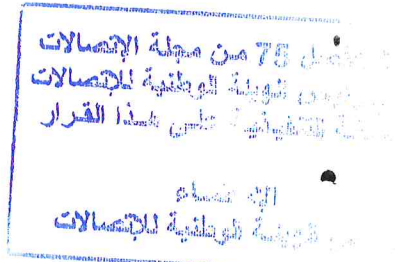 75 من مجلة الإتصالات
الهيئة الوطنية للإتصالات
على هذا القرار
الإمضاء
الهيئة الوطنية للإتصالات